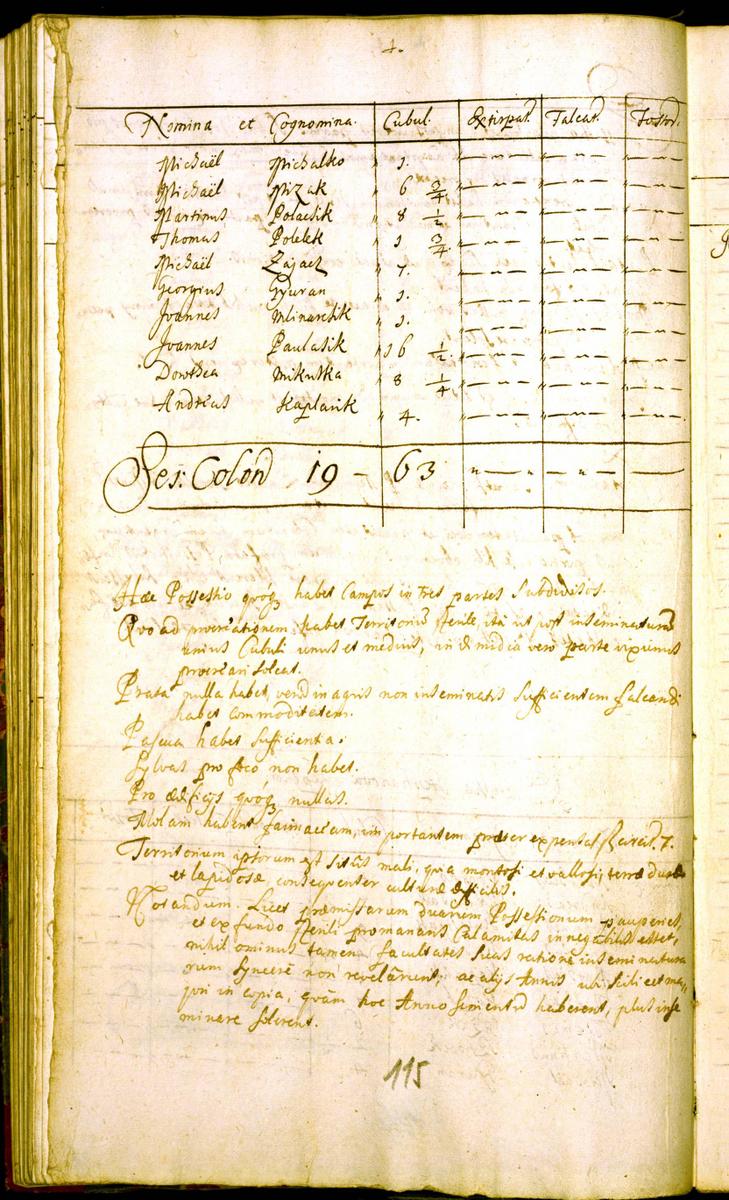 4.
Nomina et Cognomina. Cubul. Extirpat. Falcat. Fossor.
Michaël Michalko " 1. "—"— "—"— "—"—
Michaël Mizak " 6 3/4 "—"— "—"— "—"—
Martinus Polacsik " 8 1/2 "—"— "—"— "—"—
Thomas Polelek " 1 3/4 "—"— "—"— "—"—
Michaël Zajacz " 7. "—"— "—"— "—"—
Georgius Gyuran " 1. "—"— "—"— "—"—
Joannes Mlinarcsik " 1. "—"— "—"— "—"—
Joannes Paulasik " 16 1/2. "—"— "—"— "—"—
Dorothea Mikuska " 8 1/4 "—"— "—"— "—"—
Andreas Kaplarik " 4. "—"— "—"— "—"—
Ses: Colon 19 – 63 "—" "—" —
Hæc Possessio quóq habet Campos in tres partes subdivisos.
Quo ad procreationem habet Territoriũ sterile, ità ut post inseminaturam
unius Cubuli unus et medius, in dimidia verò parte vix unus
procreari soleat.
Prata nulla habet, verũ in agris non inseminatis sufficientem falcandi
habet commoditatem.
Pascua habet sufficientia.
Sylvas pro foco non habet.
Pro ædificijs quóq nullas.
Molam habent farinaceam, importantem præter expensas circit. 7.
Territorium ipsorum est sitûs mali, quia montosi et vallosi, terræ duræ
et lapidosæ, consequenter culturæ difficilis.
Notandum. Licet præmissarum duarum Possessionum pauperies,
et ex fundo sterili promanans Calamitas innegabilis esset,
nihil ominus tamen facultates suas ratione inseminatura
rum syncerè non revelârunt, ac alijs Annis ubi scilicet ma,,
jori in copia, quàm hoc Anno sementẽ haberent, plus inse
minare solerent.
115